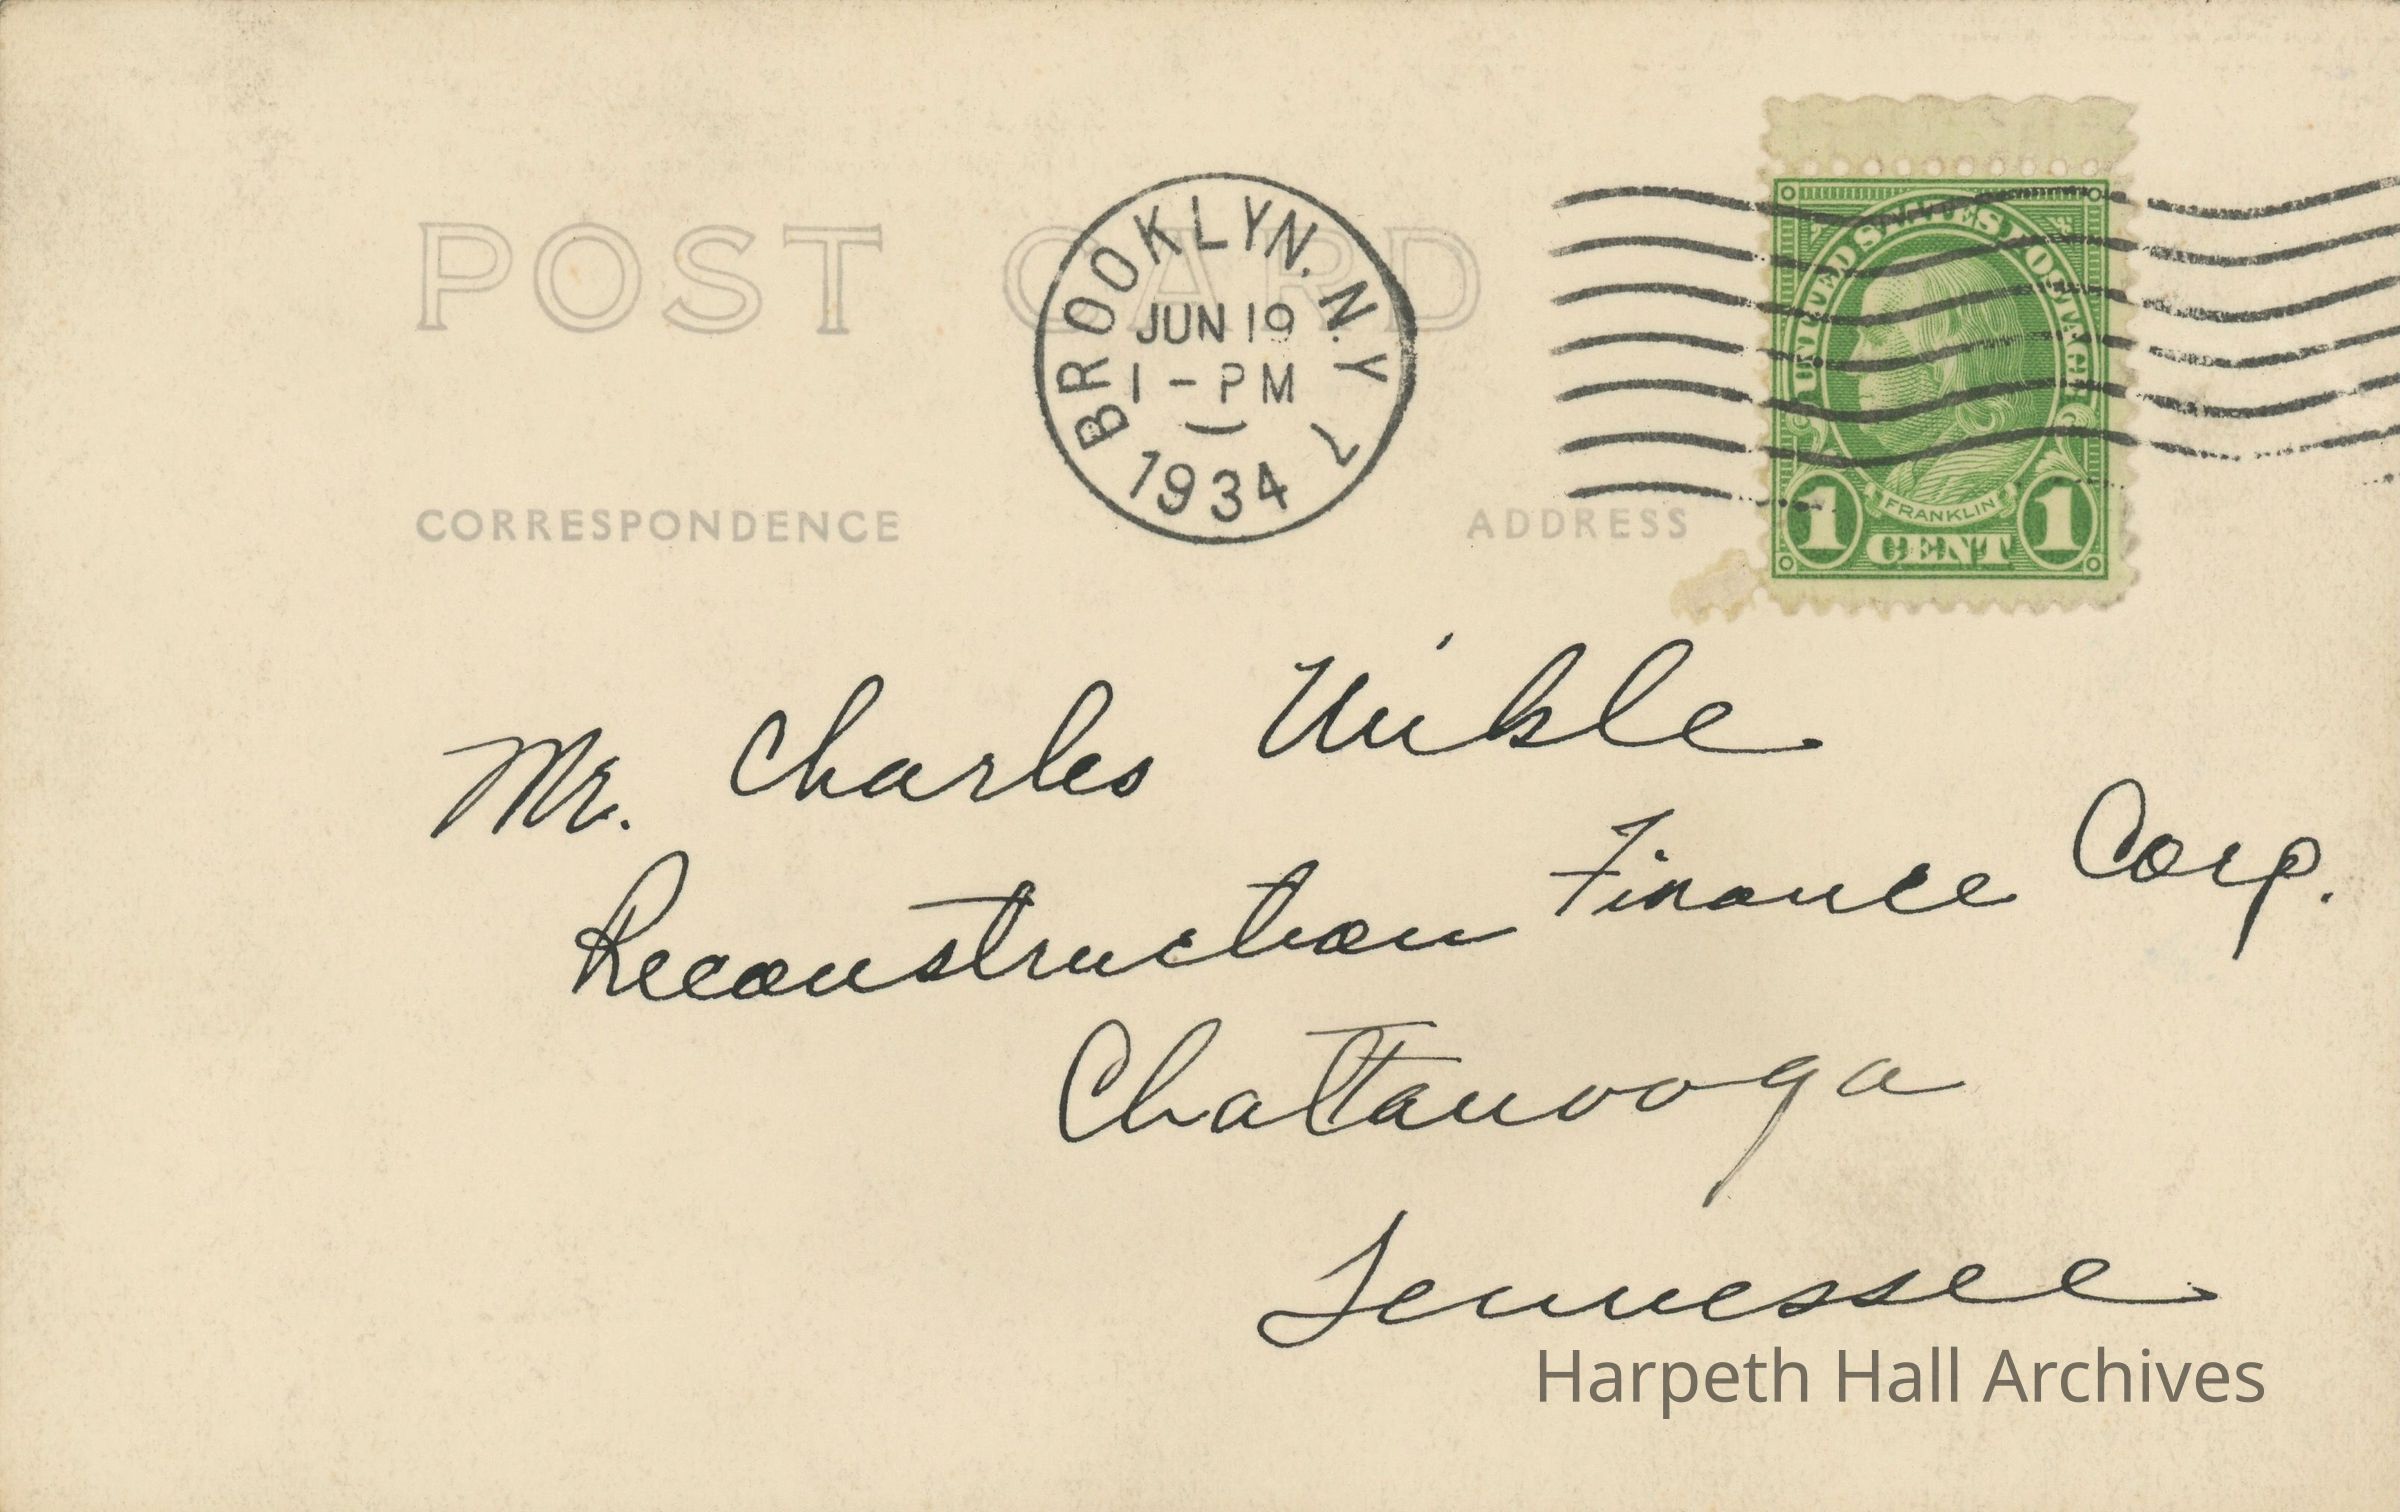 POST CARD
BROOKLYN, N.Y.
JUN 19
1 - PM
1934
7
UNITED STATES POSTAGE
FRANKLIN
1 CENT 1
CORRESPONDENCE
ADDRESS
Mr. Charles
Reconstruction Finance Corp.
Chattanooga
Tennessee
Harpeth Hall Archives